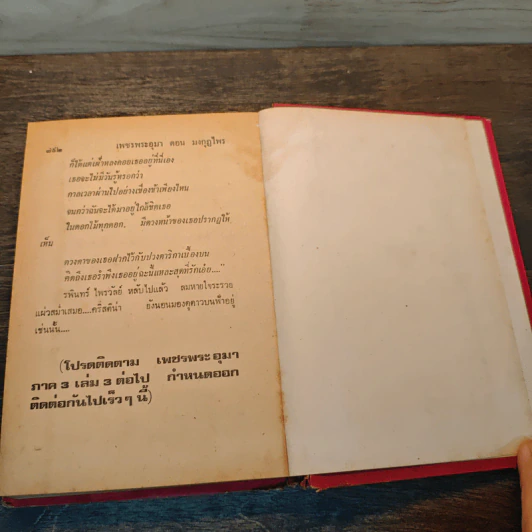 ๘๕๒ เพชรพระอุมา ตอน มงกุฎไพร
ก็ได้แต่เฝ้าหลงคอยเธออยู่ที่นี่เอง
เธอจะไม่มีวันรู้หรอกว่า
กาลเวลาผ่านไปอย่างเชื่องช้าเพียงไหน
จนกว่าฉันจะได้มาอยู่ใกล้ชิดเธอ
ในดอกไม้ทุกดอก, มีดวงหน้าของเธอปรากฏให้
เห็น
ดวงตาของเธอฝากไว้กับปวงดาริกาเบื้องบน
คิดถึงเธอรำพึงเธออยู่ฉะนั้นแหละสุดที่รักเอ๋ย...."
รพินทร์ ไพรวัลย์ หลับไปแล้ว ลมหายใจระรวย
แผ่วสม่ำเสมอ....คริสติน่า ยังนอนมองดูดาวบนฟ้าอยู่
เช่นนั้น....
(โปรดติดตาม เพชรพระอุมา
ภาค 3 เล่ม 3 ต่อไป กำหนดออก
ติดต่อกันไปเร็วๆ นี้)